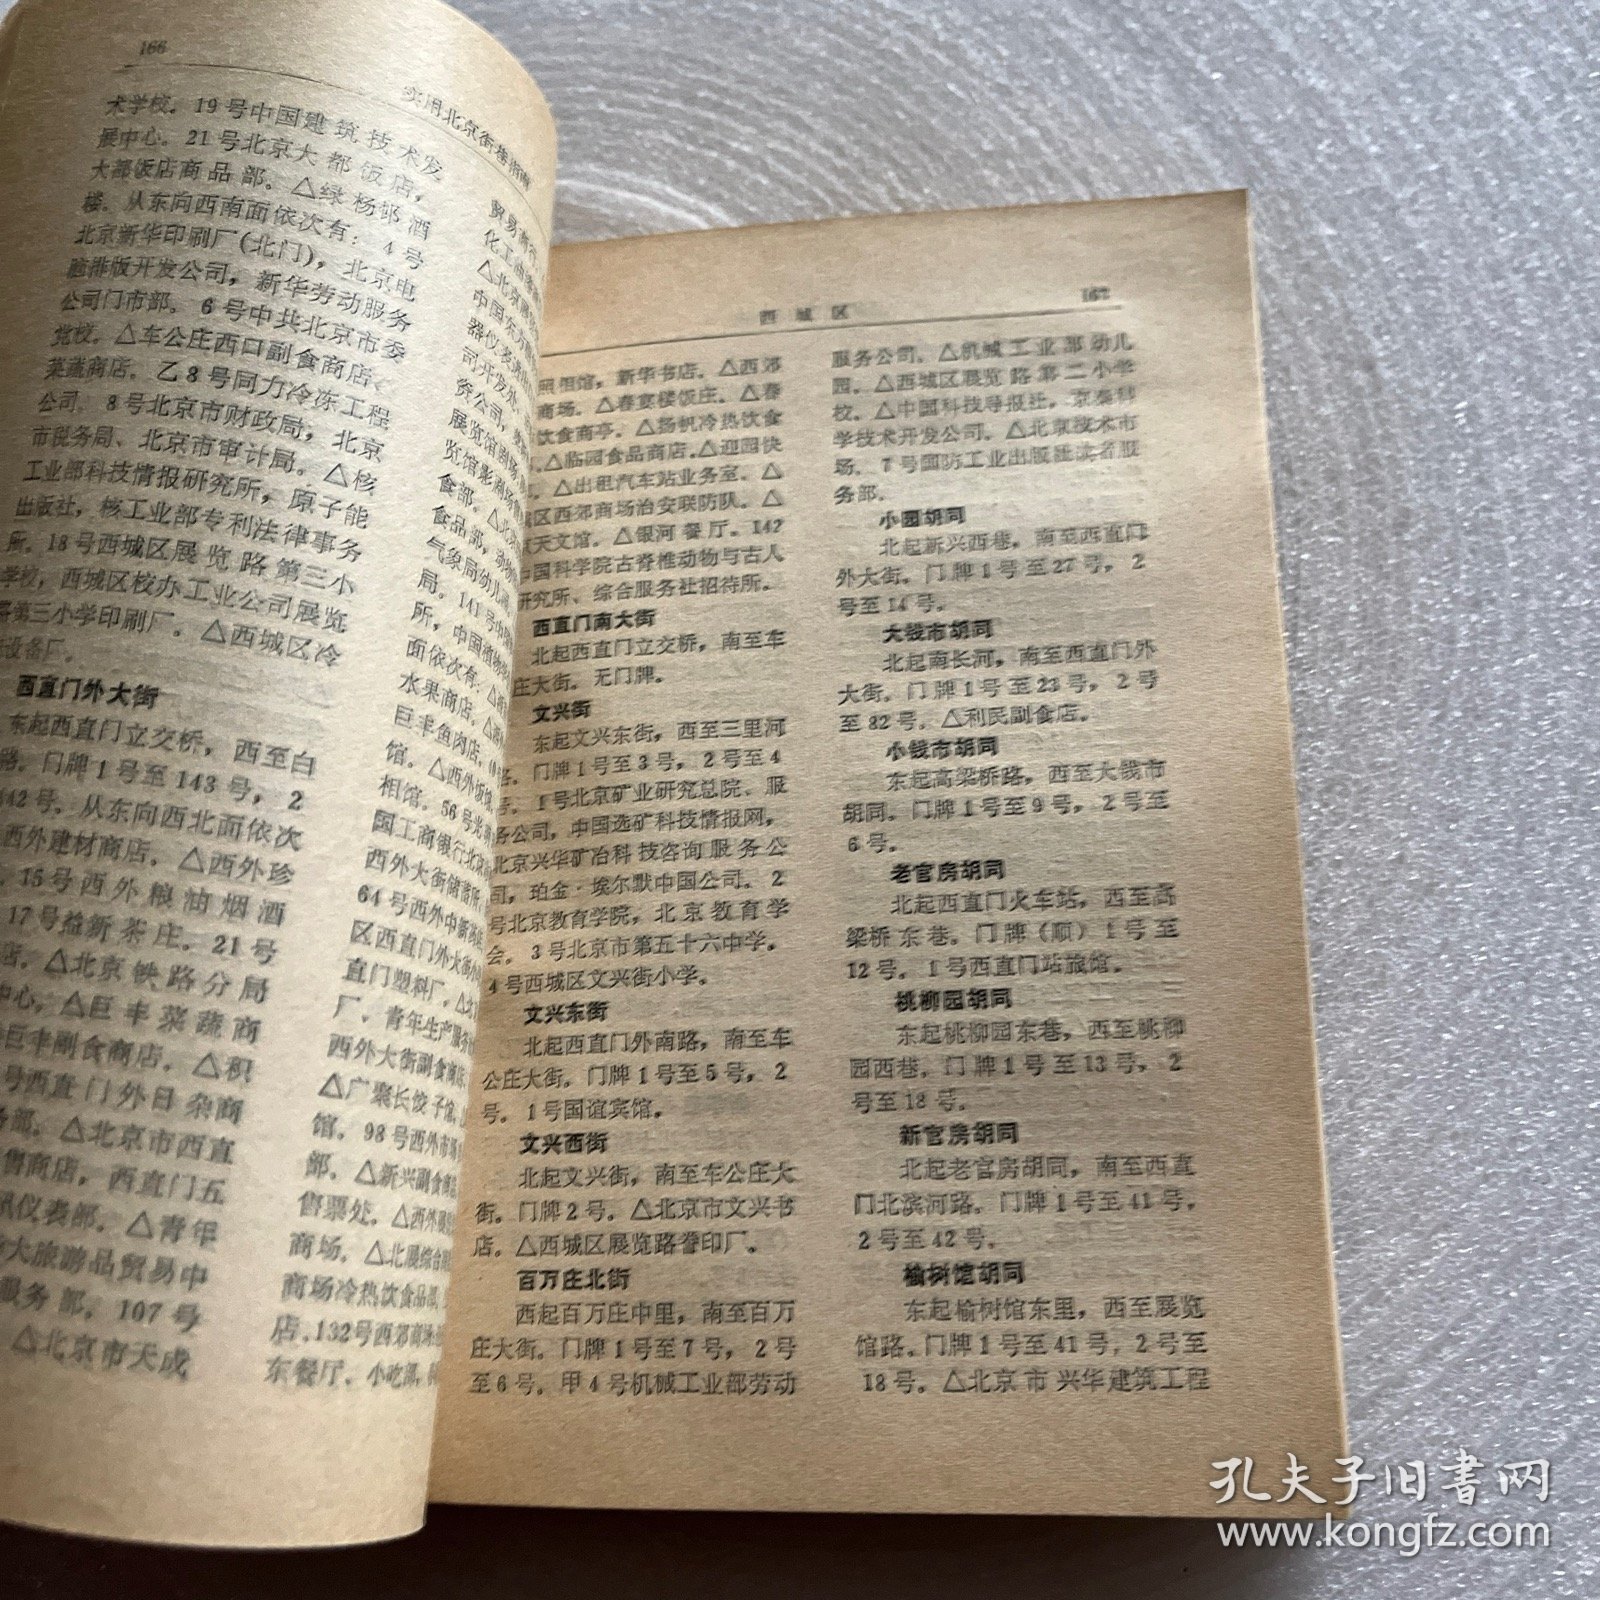 166
实用北京街巷指南
术学校。19号中国建筑技术发
展中心。21号北京大都饭店，
大都饭店商品部。△绿杨邨酒
楼。从东向西南面依次有：4号
北京新华印刷厂(北门)，北京电
脑排版开发公司，新华劳动服务
公司门市部。6号中共北京市委
党校。△车公庄西口副食商店、
菜蔬商店。乙8号同力冷冻工程
公司。8号北京市财政局，北京
市税务局、北京市审计局。△核
工业部科技情报研究所，原子能
出版社，核工业部专利法律事务
所。18号西城区展览路第三小
学校，西城区校办工业公司展览
第三小学印刷厂。△西城区冷
设备厂。
西直门外大街
东起西直门立交桥，西至白
路。门牌1号至143号，2
142号。从东向西北面依次
西外建材商店。△西外珍
15号西外粮油烟酒
17号益新茶庄。21号
店。△北京铁路分局
中心，△巨丰菜蔬商
巨丰副食商店。△积
号西直门外日杂商
部。△北京市西直
售商店，西直门五
讯仪表部。△青年
大旅游品贸易中
服务部。107号
△北京市天成
贸易商
化工
△北京展览
中国东方
器仪表
司开发处
资公司，
展览馆剧场
览馆影剧场
食部。△北
食品部，
气象局幼儿
局。141号中国
所，中国植物
面依次有：△
水果商店，△
巨丰鱼肉店。
馆。△西外饭馆
相馆。56号光
国工商银行北京
西外大街储蓄所。
64号西外中
区西直门外大街小
直门塑料厂。△
厂，青年生产服
西外大街副食商店，
△广聚长饺子馆，
馆。98号西外市场
部。△新兴副食商
售票处。△西外
商场。△北展综合
商场冷热饮食品
店。132号西郊商
东餐厅，小吃部，
西城区
167
照相馆，新华书店。△西郊
商场。△春宴楼饭庄。△春
饮食商亭。△扬帆冷热饮食
△临园食品商店。△迎园快
△出租汽车站业务室。△
区西郊商场治安联防队。△
天文馆。△银河餐厅。142
中国科学院古脊椎动物与古人
研究所、综合服务社招待所。
西直门南大街
北起西直门立交桥，南至车
庄大街。无门牌。
文兴街
东起文兴东街，西至三里河
路。门牌1号至3号，2号至4
号。1号北京矿业研究总院、服
务公司，中国选矿科技情报网，
北京兴华矿冶科技咨询服务公
司，珀金·埃尔默中国公司。2
号北京教育学院，北京教育学
会。3号北京市第五十六中学。
4号西城区文兴街小学。
文兴东街
北起西直门外南路，南至车
公庄大街。门牌1号至5号，2
号。1号国谊宾馆。
文兴西街
北起文兴街，南至车公庄大
街。门牌2号。△北京市文兴书
店。△西城区展览路誊印厂。
百万庄北街
西起百万庄中里，南至百万
庄大街。门牌1号至7号，2号
至6号。甲4号机械工业部劳动
服务公司。△机械工业部幼儿
园。△西城区展览路第二小学
校。△中国科技导报社，京泰科
学技术开发公司。△北京技术市
场。7号国防工业出版社读者服
务部。
小园胡同
北起新兴西巷，南至西直门
外大街。门牌1号至27号，2
号至14号。
大钱市胡同
北起南长河，南至西直门外
大街。门牌1号至23号，2号
至82号。△利民副食店。
小钱市胡同
东起高梁桥路，西至大钱市
胡同。门牌1号至9号，2号至
6号。
老官房胡同
北起西直门火车站，西至高
梁桥东巷。门牌(顺)1号至
12号。1号西直门站旅馆。
桃柳园胡同
东起桃柳园东巷，西至桃柳
园西巷。门牌1号至13号，2
号至18号。
新官房胡同
北起老官房胡同，南至西直
门北滨河路。门牌1号至41号，
2号至42号。
榆树馆胡同
东起榆树馆东里，西至展览
馆路。门牌1号至41号，2号至
18号。△北京市兴华建筑工程
孔夫子旧书网
www.kongfz.com